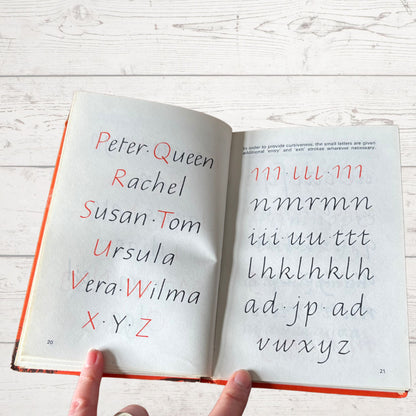 Peter·Queen
Rachel
Susan·Tom
Ursula
Vera·Wilma
X·Y·Z
20
In order to provide cursiveness, the small letters are given
additional 'entry' and 'exit' strokes wherever necessary.
nmrmn
iii·uu·ttt
lhklhklh
ad·jp·ad
vwxyz
21